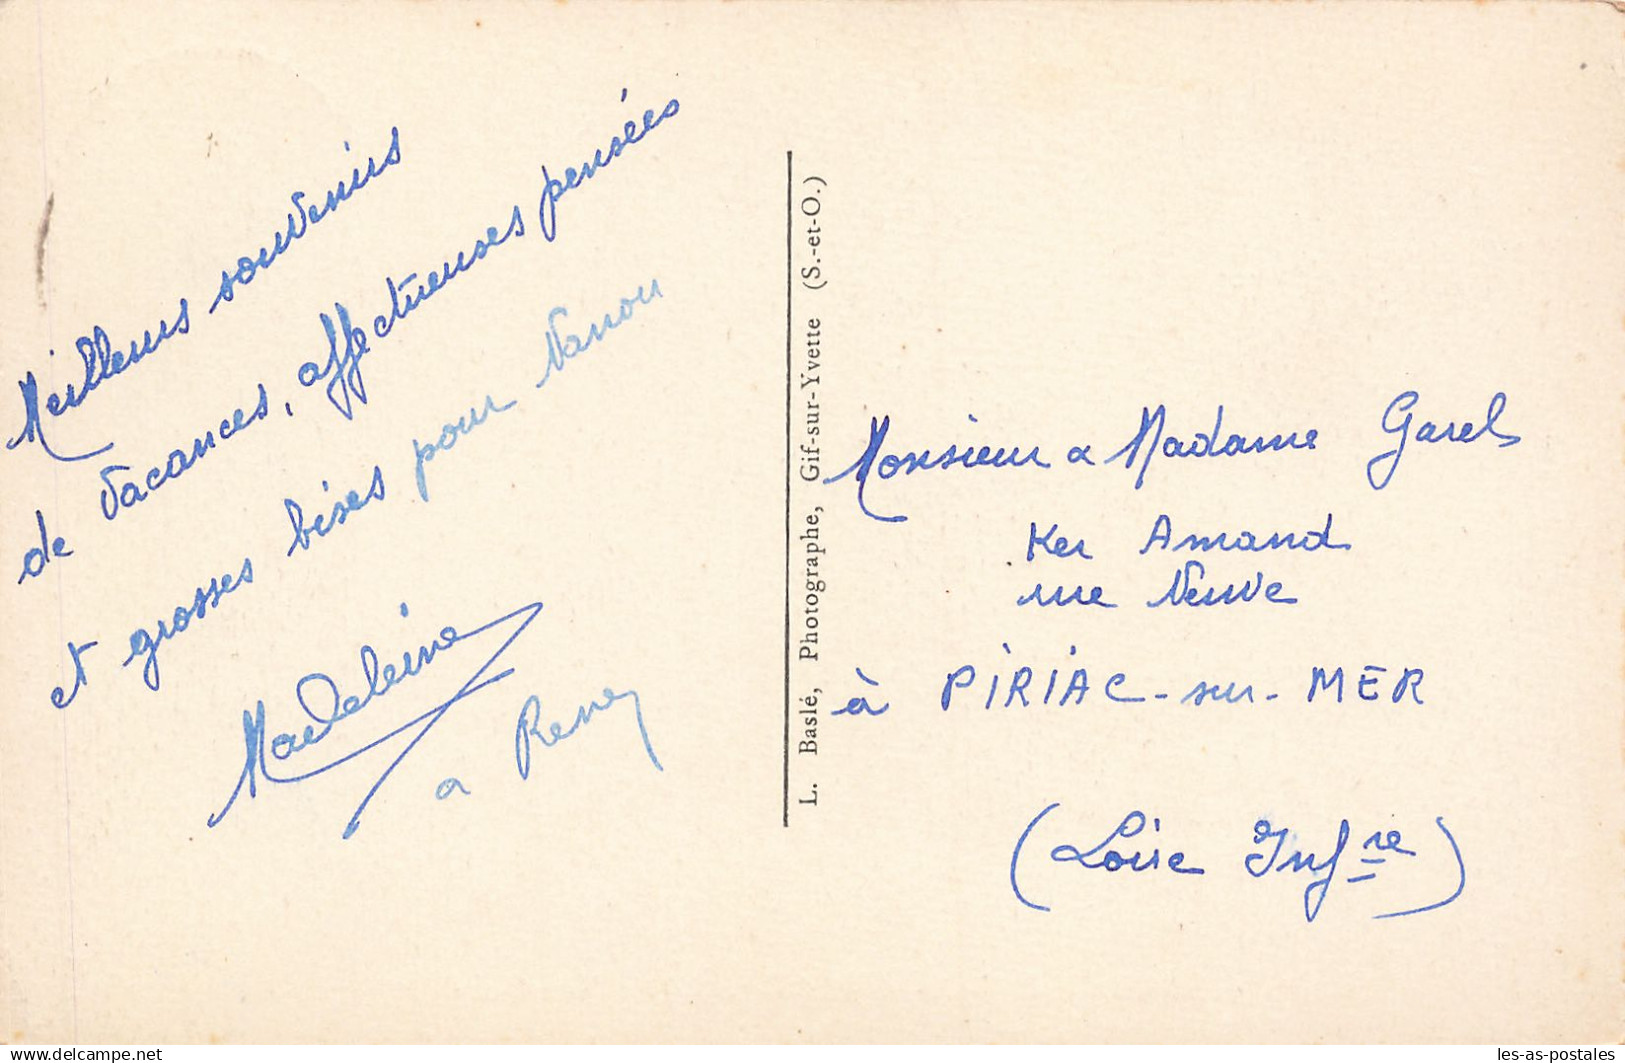 Meilleurs souvenirs
de vacances, affectueuses pensées
et grosses bises pour Nanou
Madeleine
& Reney
L. Baslé, Photographe, Gif-sur-Yvette (S.-et-O.)
Monsieur & Madame Garel
Ker Amand
rue Neuve
à PIRIAC-sur-MER
(Loire Infre)
www.delcampe.net
les-as-postales